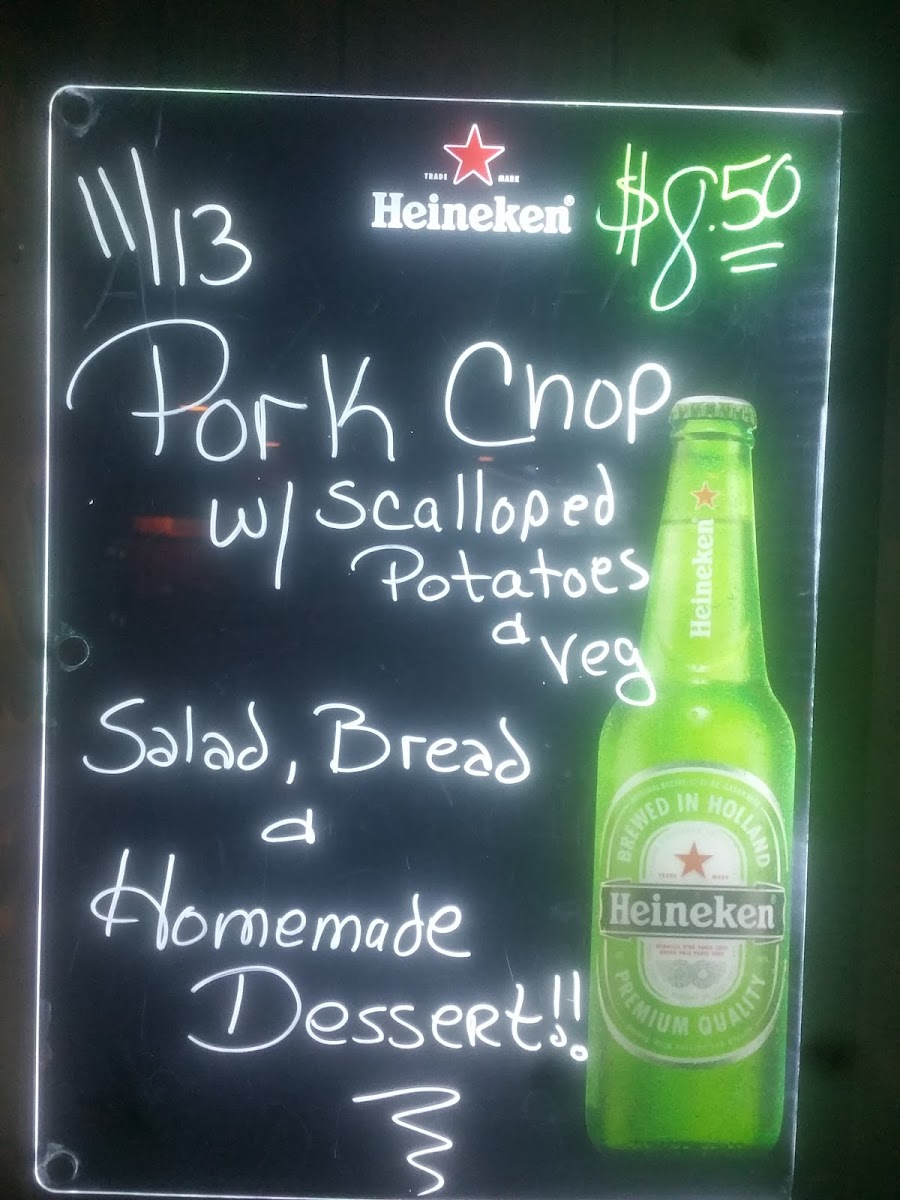 11/13
TRADE MARK
Heineken®
$8.50
Pork Chop
w/ Scalloped
Potatoes
& Veg
Salad, Bread
&
Homemade
Dessert!!
Heineken
BREWED IN HOLLAND
TRADE MARK
Heineken
PREMIUM QUALITY